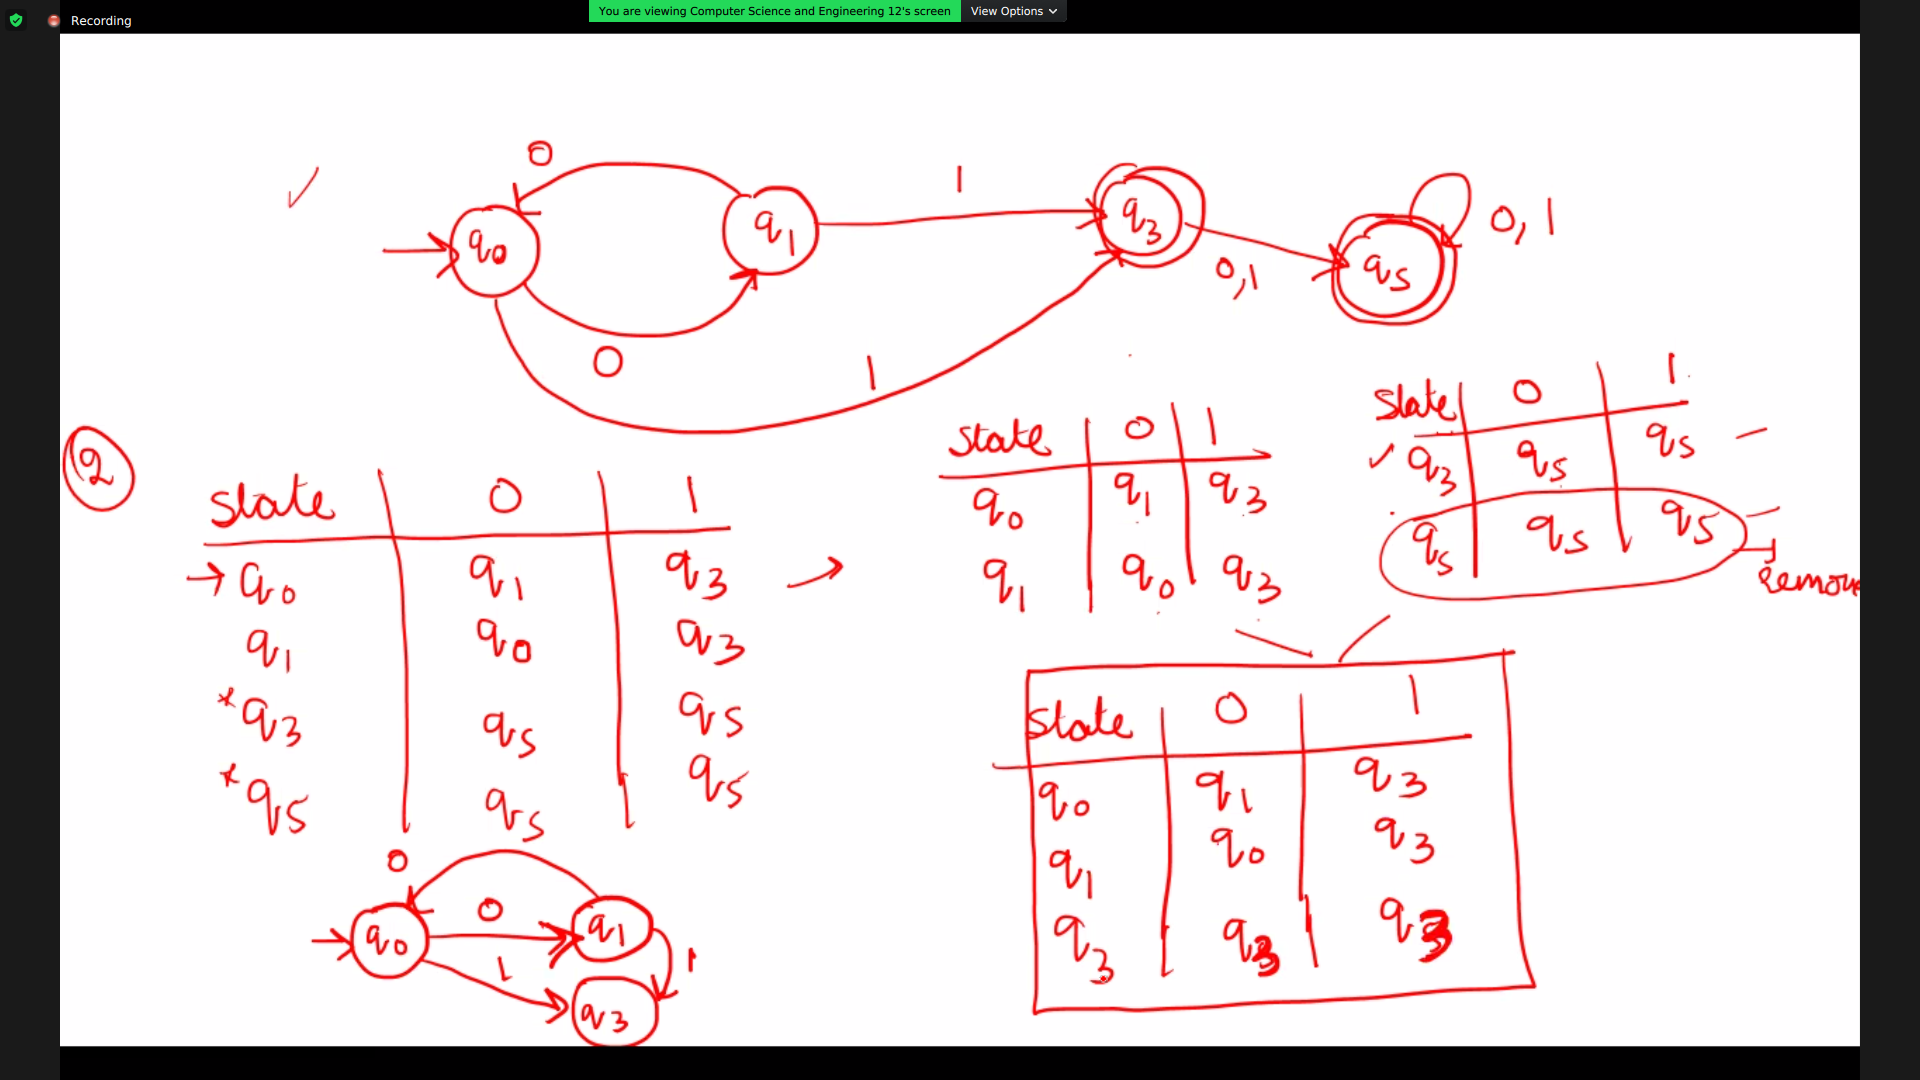 Recording
You are viewing Computer Science and Engineering 12's screen
View Options
0
1
q0
q1
q3
q5
0, 1
0,1
0
1
2
State 0 1
→ q0 q1 q3
q1 q0 q3
*q3 q5 q5
*q5 q5 q5
State 0 1
q0 q1 q3
q1 q0 q3
State 0 1
✓ q3 q5 q5
q5 q5 q5
State 0 1
q0 q1 q3
q1 q0 q3
q3 q3 q3
0
0
q0
q1
1
1
q3